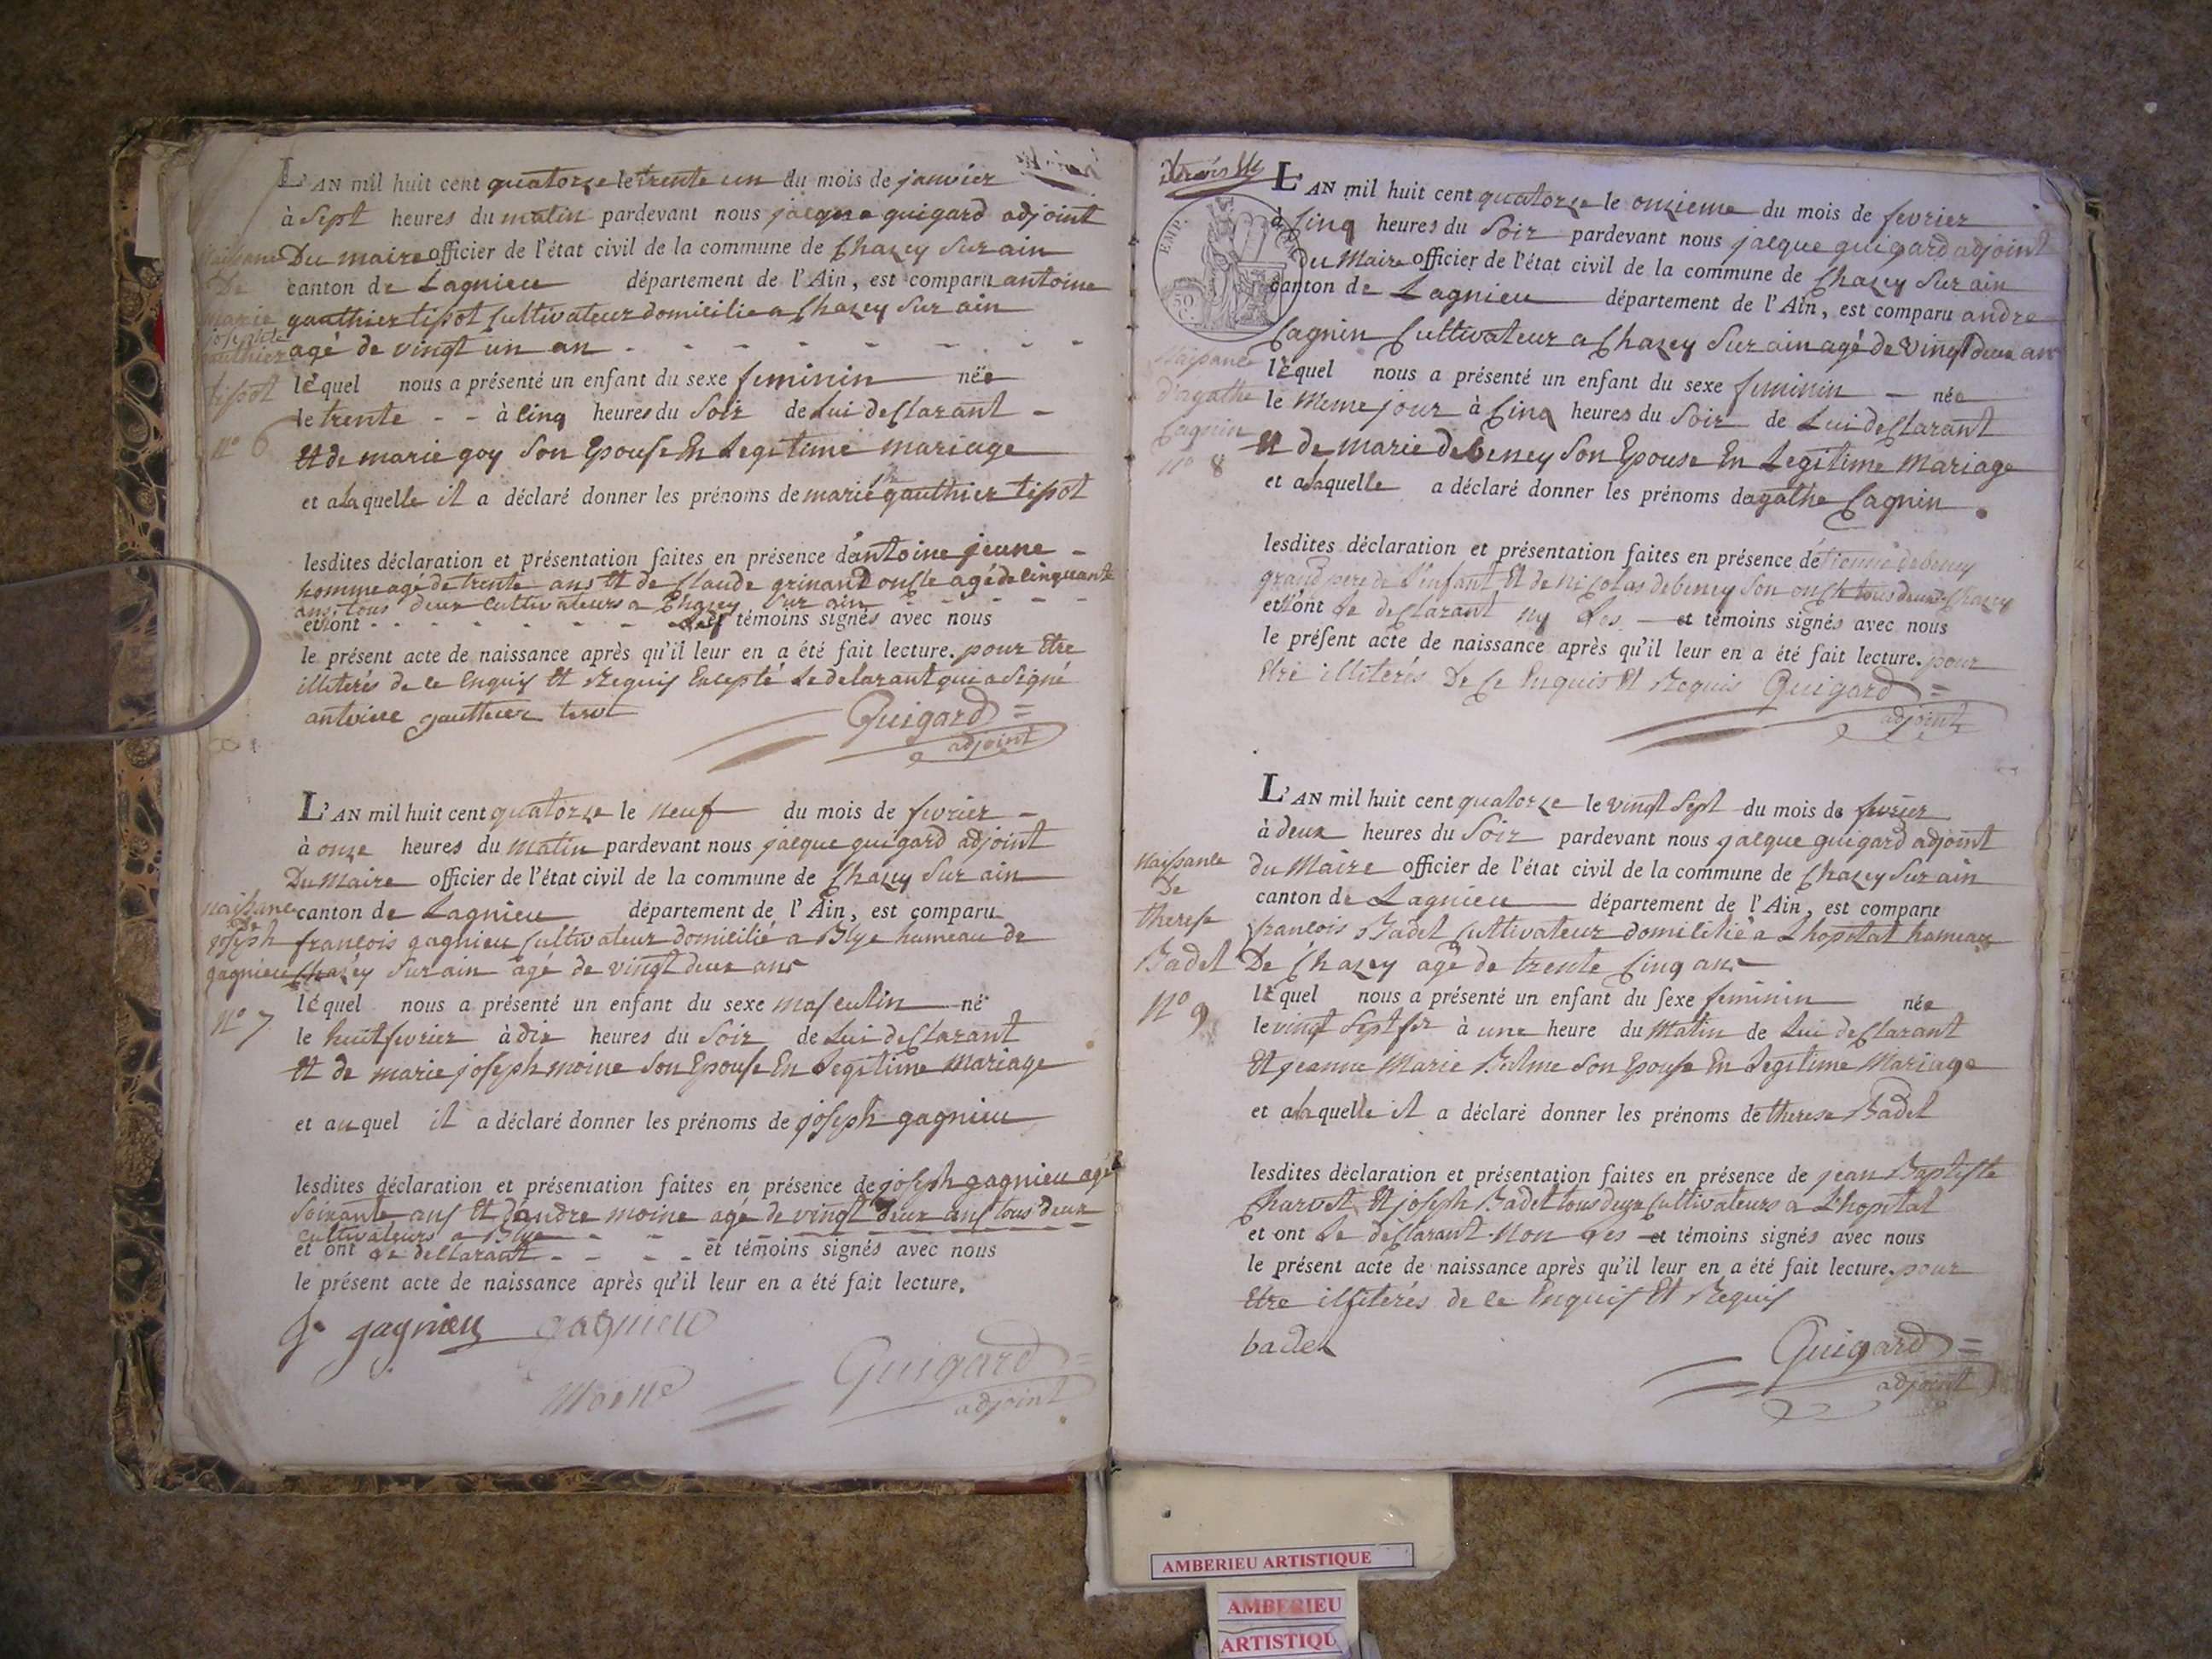 L'AN mil huit cent quatorze le trente un du mois de janvier
à Sept heures du matin pardevant nous jacque guigard adjoint
Du maire officier de l'état civil de la commune de Chazey Sur ain
canton de Lagnieu département de l'Ain, est comparu antoine
gauthier tissot Cultivateur domicilié a Chazey Sur ain
agé de vingt un an
lequel nous a présenté un enfant du sexe feminin née
le trente à Cinq heures du Soir de Lui declarant
Et de marie goy Son Epouse En Legitime mariage
et a laquelle il a déclaré donner les prénoms de marie gauthier tissot
lesdites déclaration et présentation faites en présence d'antoine jeune
homme agé de trente ans Et de Claude grinand oncle agé de Cinquante
ans tous deux Cultivateurs a Chazey Sur ain
et ont Les témoins signés avec nous
le présent acte de naissance après qu'il leur en a été fait lecture. pour Etre
illiterés de ce Enquis Et Requis Excepté Le declarant qui a Signé
antoine gauthier tisot
Guigard
adjoint
Naissance
De
marie
josephte
gauthier
tissot
N° 6
L'AN mil huit cent quatorze le neuf du mois de fevrier
à onze heures du matin pardevant nous jacque guigard adjoint
Du Maire officier de l'état civil de la commune de Chazey Sur ain
canton de Lagnieu département de l'Ain, est comparu
francois gagnieu Cultivateur domicilié a Blye hameau de
Chazey Sur ain agé de vingt deux ans
lequel nous a présenté un enfant du sexe masculin né
le huit fevrier à dix heures du Soir de Lui declarant
Et de marie joseph moine Son Epouse En Legitime Mariage
et auquel il a déclaré donner les prénoms de joseph gagnieu
lesdites déclaration et présentation faites en présence de joseph gagnieu agé
Soixante ans Et d'andre moine agé de vingt deux ans tous deux
Cultivateurs a Blye
et ont Le declarant et témoins signés avec nous
le présent acte de naissance après qu'il leur en a été fait lecture.
gagnieu gagnieu
Moine
Guigard
adjoint
naissance
De
joseph
gagnieu
N° 7
EMP.
50 C.
L'AN mil huit cent quatorze le onzieme du mois de fevrier
à Cinq heures du Soir pardevant nous jacque guigard adjoint
Du Maire officier de l'état civil de la commune de Chazey Sur ain
canton de Lagnieu département de l'Ain, est comparu andre
Cagnin Cultivateur a Chazey Sur ain agé de Vingt deux ans
lequel nous a présenté un enfant du sexe feminin née
le meme jour à Cinq heures du Soir de Lui declarant
Et de Marie debeney Son Epouse En Legitime Mariage
et a laquelle a déclaré donner les prénoms dagathe Cagnin
lesdites déclaration et présentation faites en présence détienne debeney
grand pere de L'enfant Et de nicolas debeney Son oncle tous deux a Chazey
et n'ont Le declarant ny Les et témoins signés avec nous
le présent acte de naissance après qu'il leur en a été fait lecture. pour
Etre illiterés De Ce Enquis Et Requis Guigard
adjoint
Naissance
d'agathe
Cagnin
N° 8
L'AN mil huit cent quatorze le vingt Sept du mois de fevrier
à deux heures du Soir pardevant nous jacque guigard adjoint
du Maire officier de l'état civil de la commune de Chazey Sur ain
canton de Lagnieu département de l'Ain, est comparu
francois Badel Cultivateur domicilié a Lhopital hameau
De Chazey agé de trente Cinq ans
lequel nous a présenté un enfant du sexe feminin née
le vingt Sept fer à une heure du Matin de Lui declarant
Et jeanne Marie Balme Son Epouse En Legitime Mariage
et a laquelle il a déclaré donner les prénoms de therese Badel
lesdites déclaration et présentation faites en présence de jean Baptiste
Charvet Et joseph Badel tous deux Cultivateurs a Lhopital
et ont Le declarant Non Les et témoins signés avec nous
le présent acte de naissance après qu'il leur en a été fait lecture. pour
Etre illiterés de ce Enquis Et Requis
badel
Guigard
adjoint
Naissance
De
therese
Badel
N° 9
AMBERIEU ARTISTIQUE
AMBERIEU
ARTISTIQU